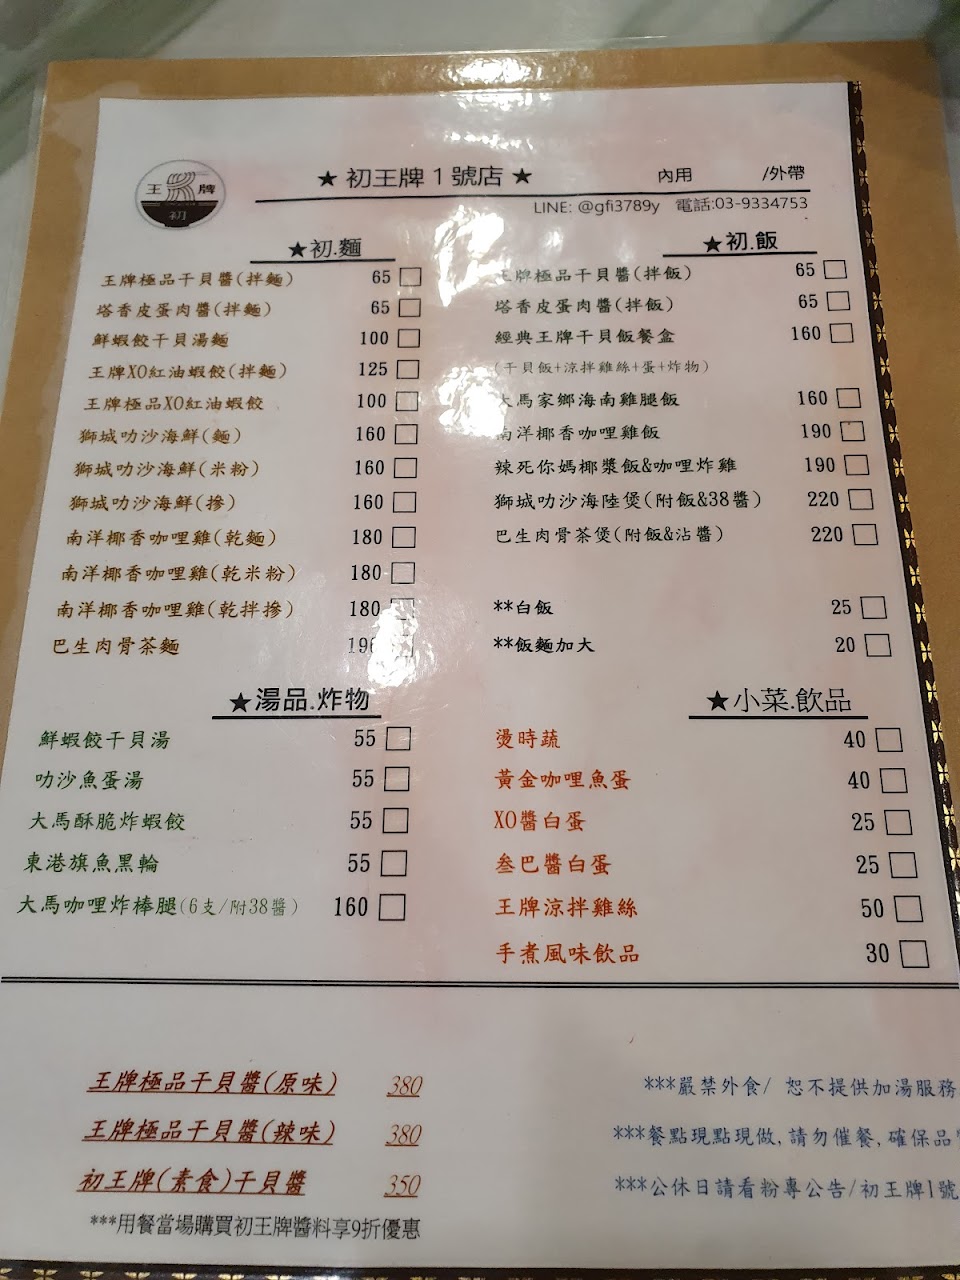 王 牌
初
★ 初王牌 1 號店 ★ 內用 /外帶
LINE: @gfi3789y 電話:03-9334753
★初.麵
王牌極品干貝醬(拌麵) 65
塔香皮蛋肉醬(拌麵) 65
鮮蝦餃干貝湯麵 100
王牌XO紅油蝦餃(拌麵) 125
王牌極品XO紅油蝦餃 100
獅城叻沙海鮮(麵) 160
獅城叻沙海鮮(米粉) 160
獅城叻沙海鮮(摻) 160
南洋椰香咖哩雞(乾麵) 180
南洋椰香咖哩雞(乾米粉) 180
南洋椰香咖哩雞(乾拌摻) 180
巴生肉骨茶麵 190
★初.飯
王牌極品干貝醬(拌飯) 65
塔香皮蛋肉醬(拌飯) 65
經典王牌干貝飯餐盒 160
(干貝飯+涼拌雞絲+蛋+炸物)
大馬家鄉海南雞腿飯 160
南洋椰香咖哩雞飯 190
辣死你媽椰漿飯&咖哩炸雞 190
獅城叻沙海陸煲(附飯&38醬) 220
巴生肉骨茶煲(附飯&沾醬) 220
**白飯 25
**飯麵加大 20
★湯品.炸物
鮮蝦餃干貝湯 55
叻沙魚蛋湯 55
大馬酥脆炸蝦餃 55
東港旗魚黑輪 55
大馬咖哩炸棒腿(6支/附38醬) 160
★小菜.飲品
燙時蔬 40
黃金咖哩魚蛋 40
XO醬白蛋 25
叁巴醬白蛋 25
王牌涼拌雞絲 50
手煮風味飲品 30
王牌極品干貝醬(原味) 380
王牌極品干貝醬(辣味) 380
初王牌(素食)干貝醬 350
***用餐當場購買初王牌醬料享9折優惠
***嚴禁外食/ 恕不提供加湯服務
***餐點現點現做,請勿催餐,確保品
***公休日請看粉專公告/初王牌1號